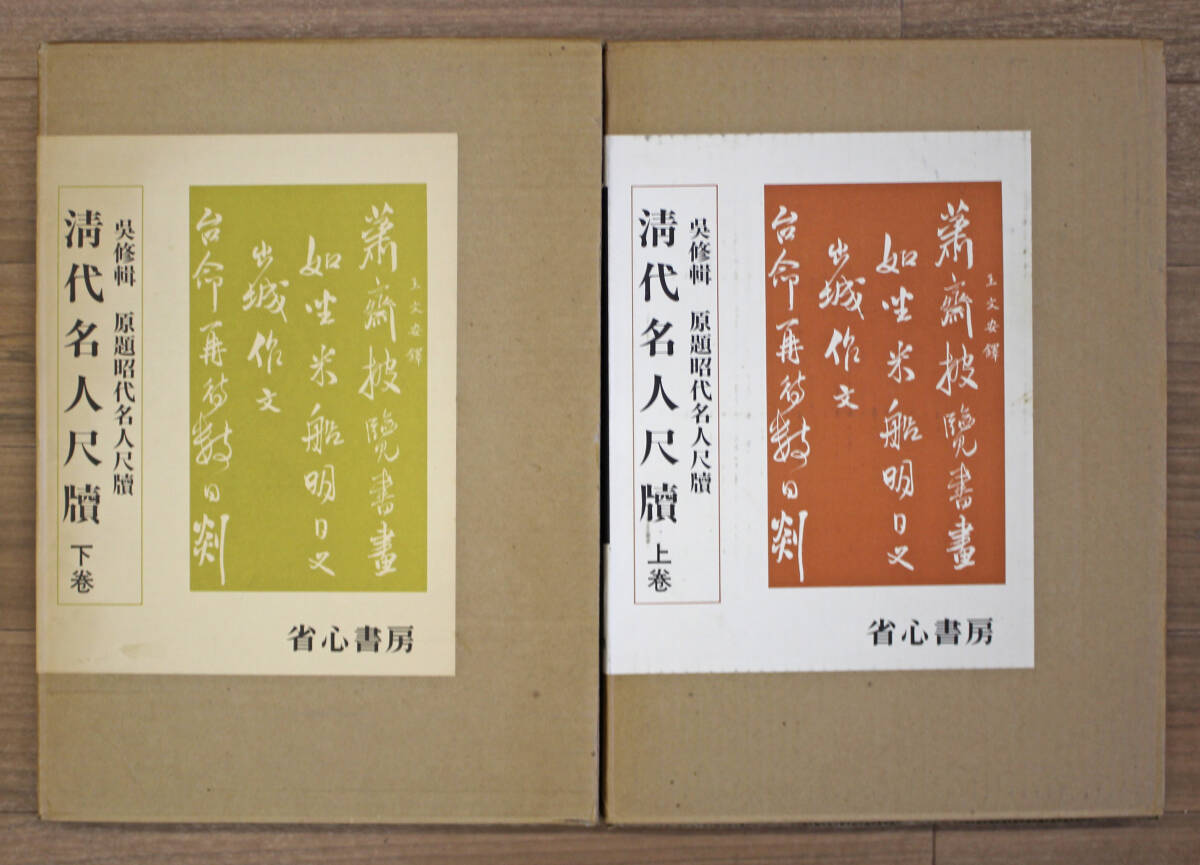 王文安鐸
蕭齋披覽書畫
如坐米船明日又
出城作文
台命再待數日剡
吳修輯 原題昭代名人尺牘
清代名人尺牘 上卷
省心書房
王文安鐸
蕭齋披覽書畫
如坐米船明日又
出城作文
台命再待數日剡
吳修輯 原題昭代名人尺牘
清代名人尺牘 下卷
省心書房